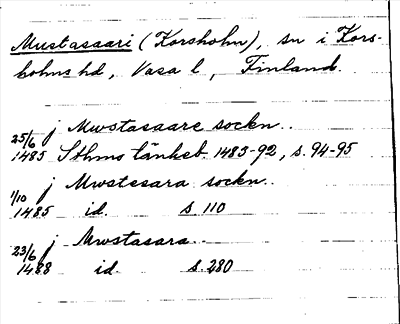 Mustasaari (Korsholm), sn i Kors-
holms hd, Vasa l, Finland.
25/6 1485 j Mwstasaare sockn..
Sthms tänkeb. 1483-92, s. 94-95
1/10 1485 j Mwstesara sockn..
id. s. 110
23/6 1488 j Mwstasara..
id. s. 280